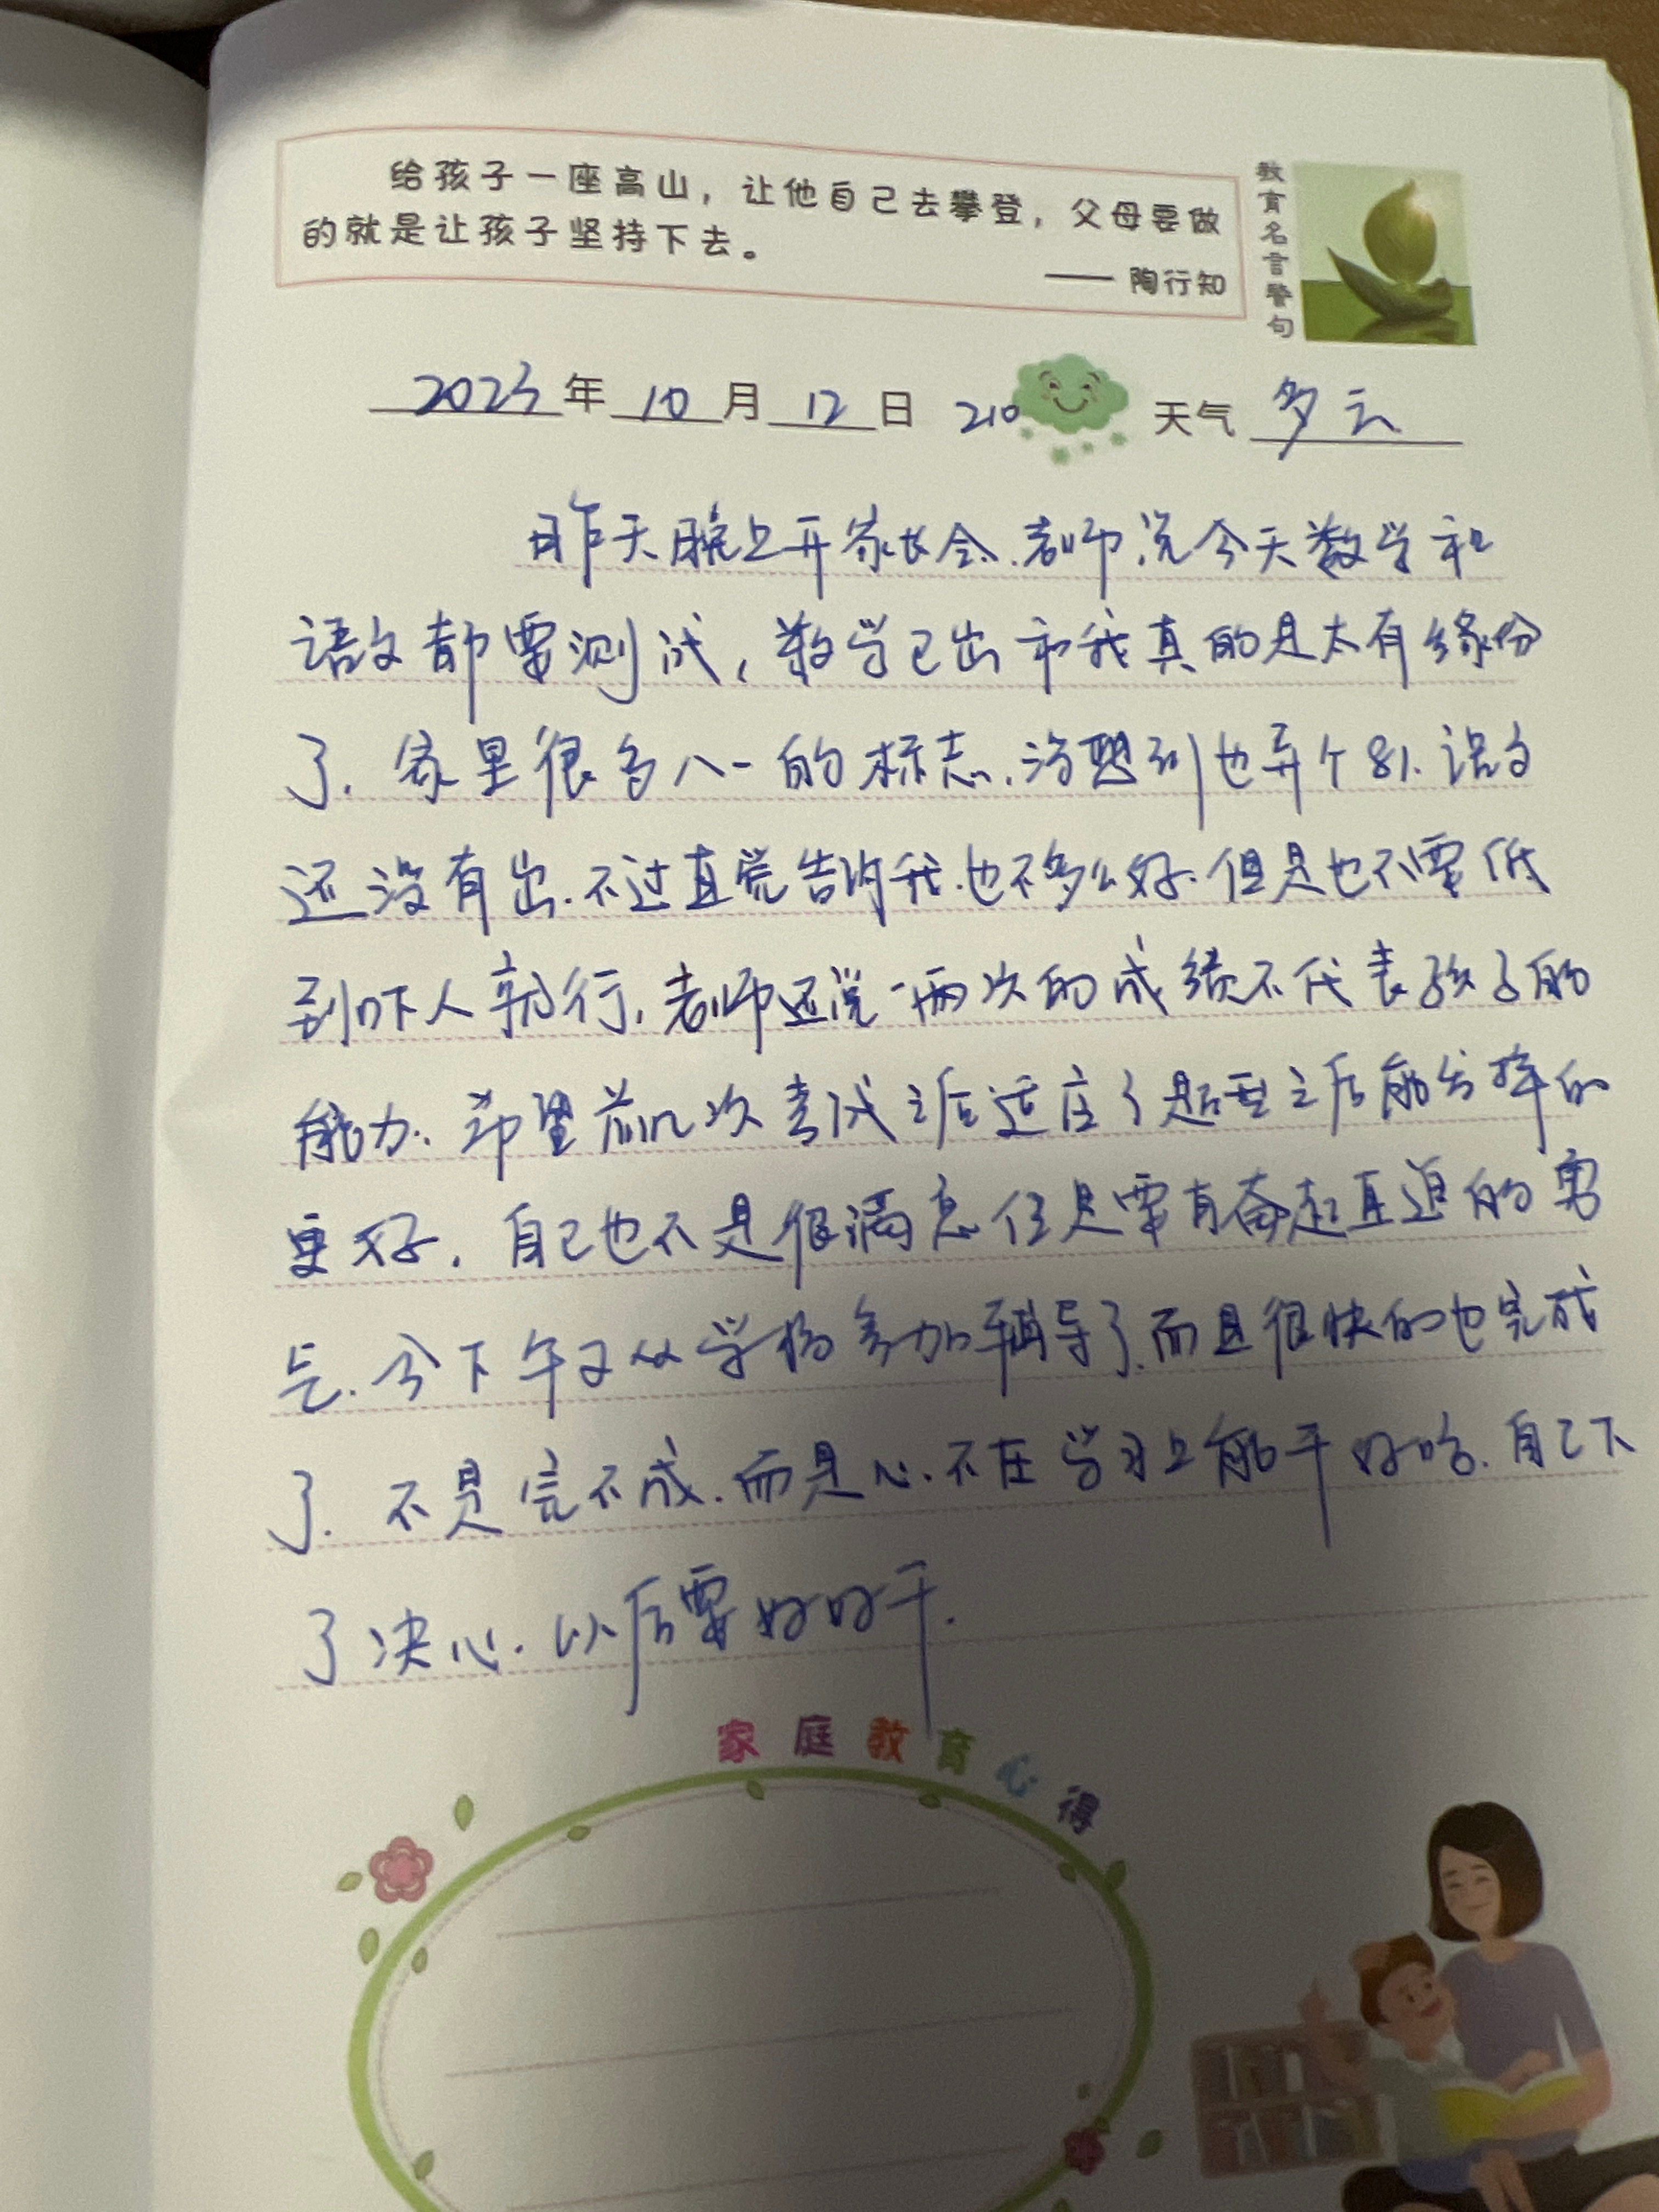 给孩子一座高山，让他自己去攀登，父母要做
的就是让孩子坚持下去。
—— 陶行知
教育名言警句
2023年10月12日 210 天气 多云
昨天晚上开家长会.老师说今天数学和
语文都要测试，数学已出 和我真的是太有缘份
了.家里很多八一的标志.没想到也弄个81.语文
还没有出.不过直觉告诉我.也不多么好.但是也不要低
到吓人就行.老师还说一两次的成绩不代表孩子的
能力.希望前几次考试之后适应了题型之后能发挥的
更好.自己也不是很满意但是要有奋起直追的勇
气.今下午又从学校参加辅导了.而且很快的也完成
了.不是完不成.而是心.不在学习上能干好啥.自己下
了决心.以后要好好干.
家庭教育心得